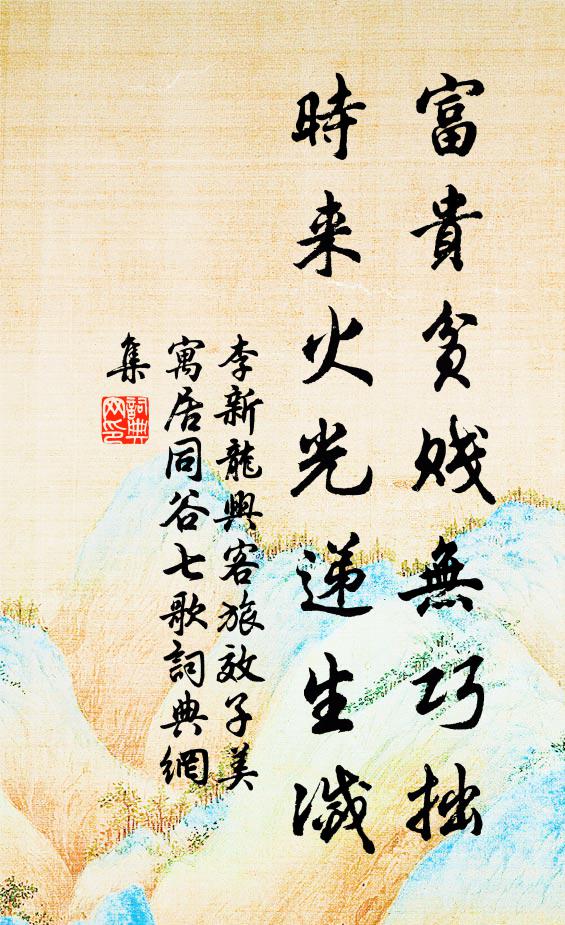 富貴貧賤無巧拙
時来火光递生滅
李新龍興客旅效子美
寓居同谷七歌詞典網
集
詞典網印